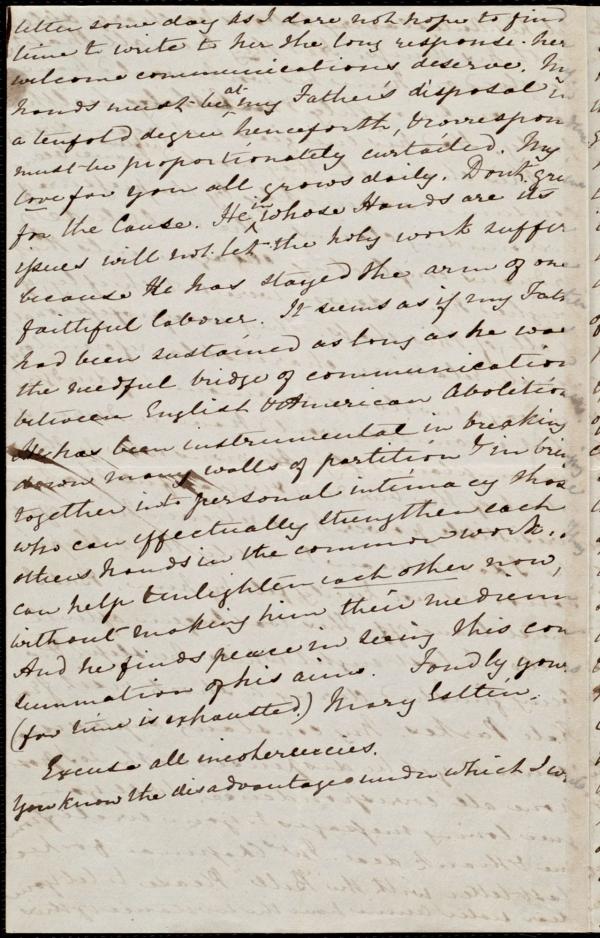 letter some day as I dare not hope to find
time to write to her the long response her
welcome communications deserve. My
hands must be at my Father's disposal in
a tenfold degree henceforth, & correspon
must be proportionately curtailed. My
love for you all grows daily. Don't gri
for the Cause. He in whose Hands are its
issues will not let the holy work suffer
because He has stayed the arm of one
faithful laborer. It seems as if my Fath
had been sustained as long as he was
the needful bridge of communication
between English & American Abolition
He has been instrumental in breaking
down many walls of partition & in brin
together into personal intimacy those
who can effectually strengthen each
others hands in the common work.
can help & enlighten each other now,
without making him their medium
And he finds peace in seeing this con
summation of his aims. Fondly your
(for time is exhausted) Mary Estlin.
Excuse all incoherencies.
You know the disadvantages under which I wr